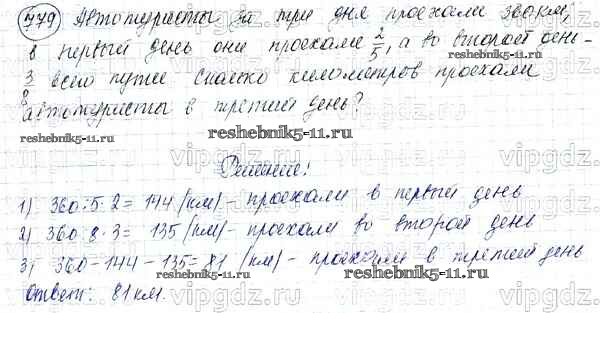 779 Автотуристы за три дня проехали 360 км,
в первый день они проехали 2/5, а во второй день -
3/8 всего пути. Сколько километров проехали
автотуристы в третий день?
reshebnik5-11.ru
reshebnik5-11.ru
Решение:
1) 360:5·2= 144 (км) - проехали в первый день
2) 360:8·3= 135 (км) - проехали во второй день
3) 360-144-135=81 (км) - проехали в третий день
reshebnik5-11.ru
Ответ: 81 км.
vipgdz.ru